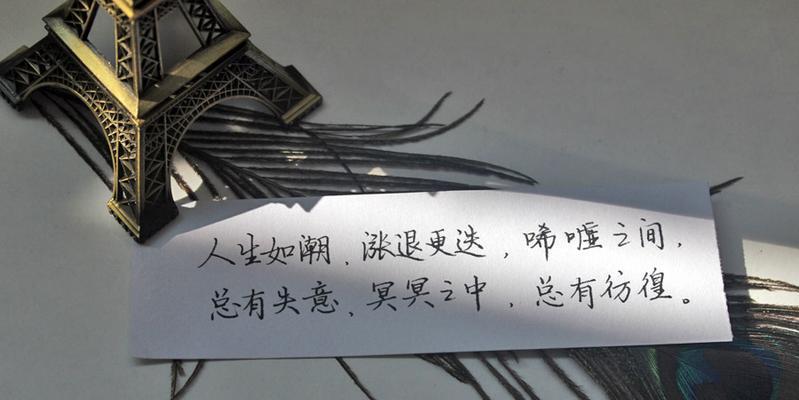 人生如潮、涨退更迭，唏嘘之间，
总有失意、冥冥之中，总有彷徨。